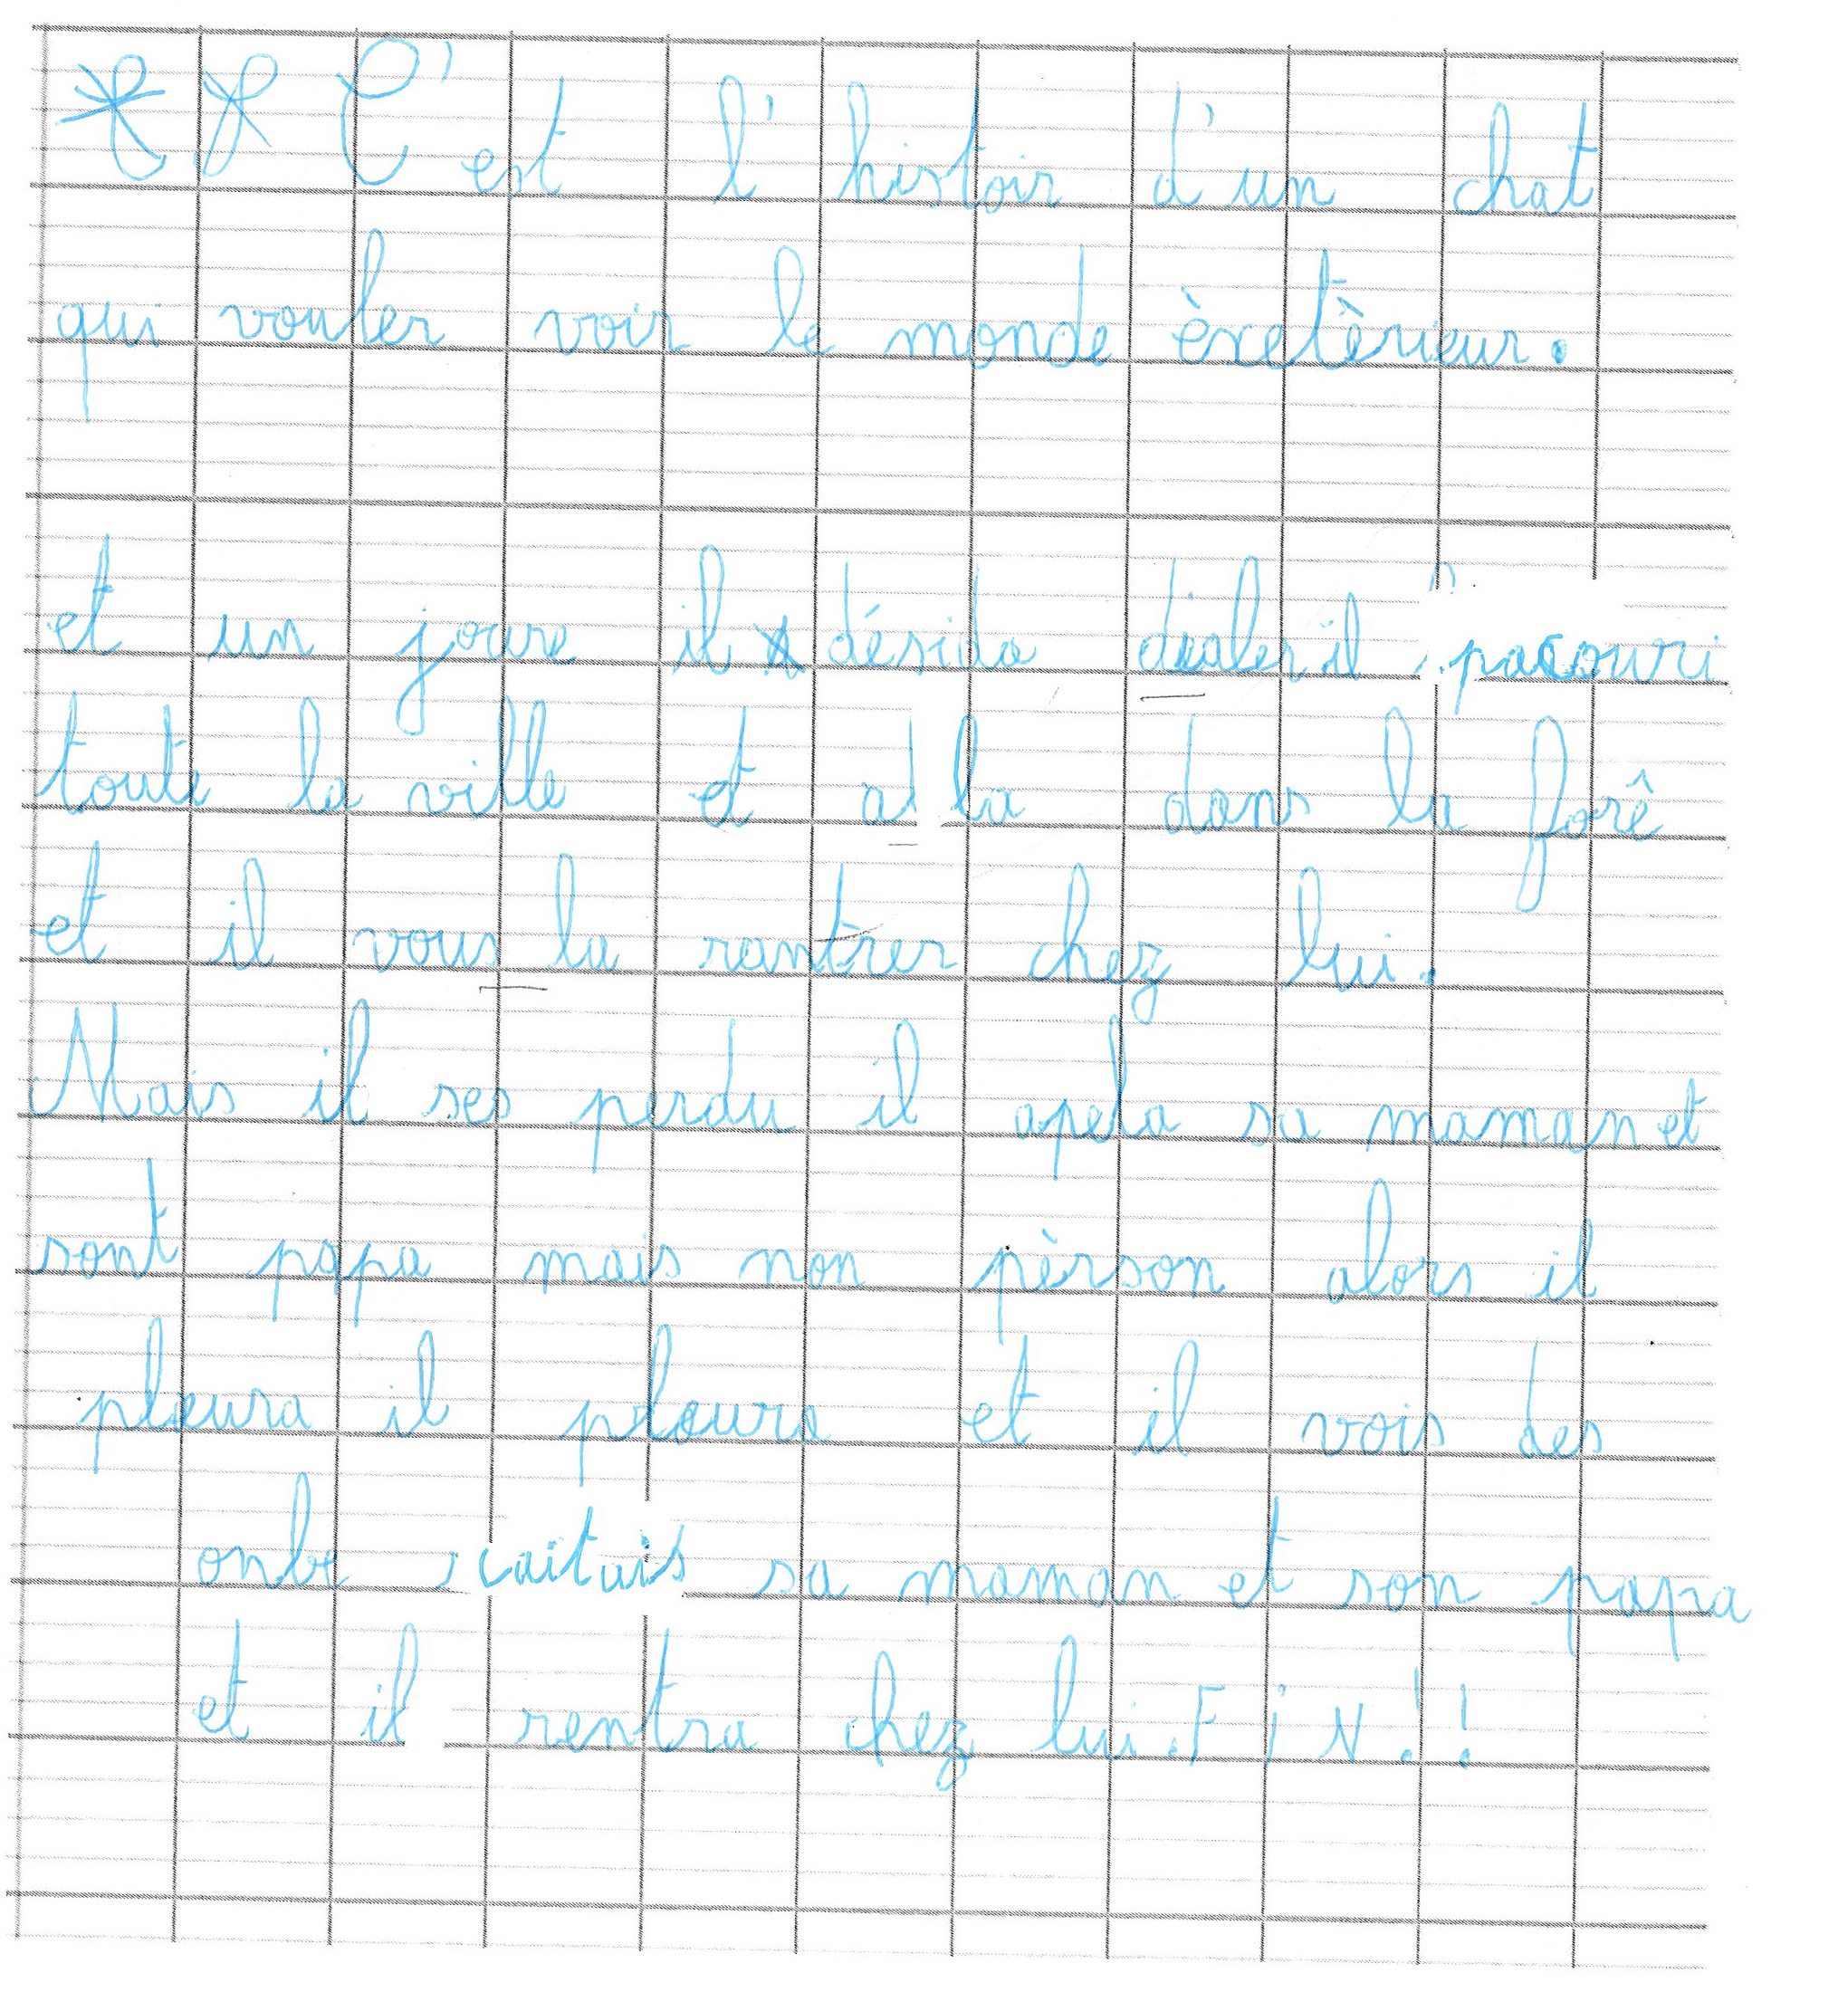 C'est l'histoir d'un chat
qui vouler voir le monde èxetèrieur.
et un joure il désida dialer il pacouri
toute la ville et a la dans la forê
et il vous la rantrer chez lui.
Mais il ses perdu il apela sa maman et
sont papa mais non pèrson alors il
pleura il pleura et il vois des
onbe caitais sa maman et son papa
et il rentra chez lui. FiN!!